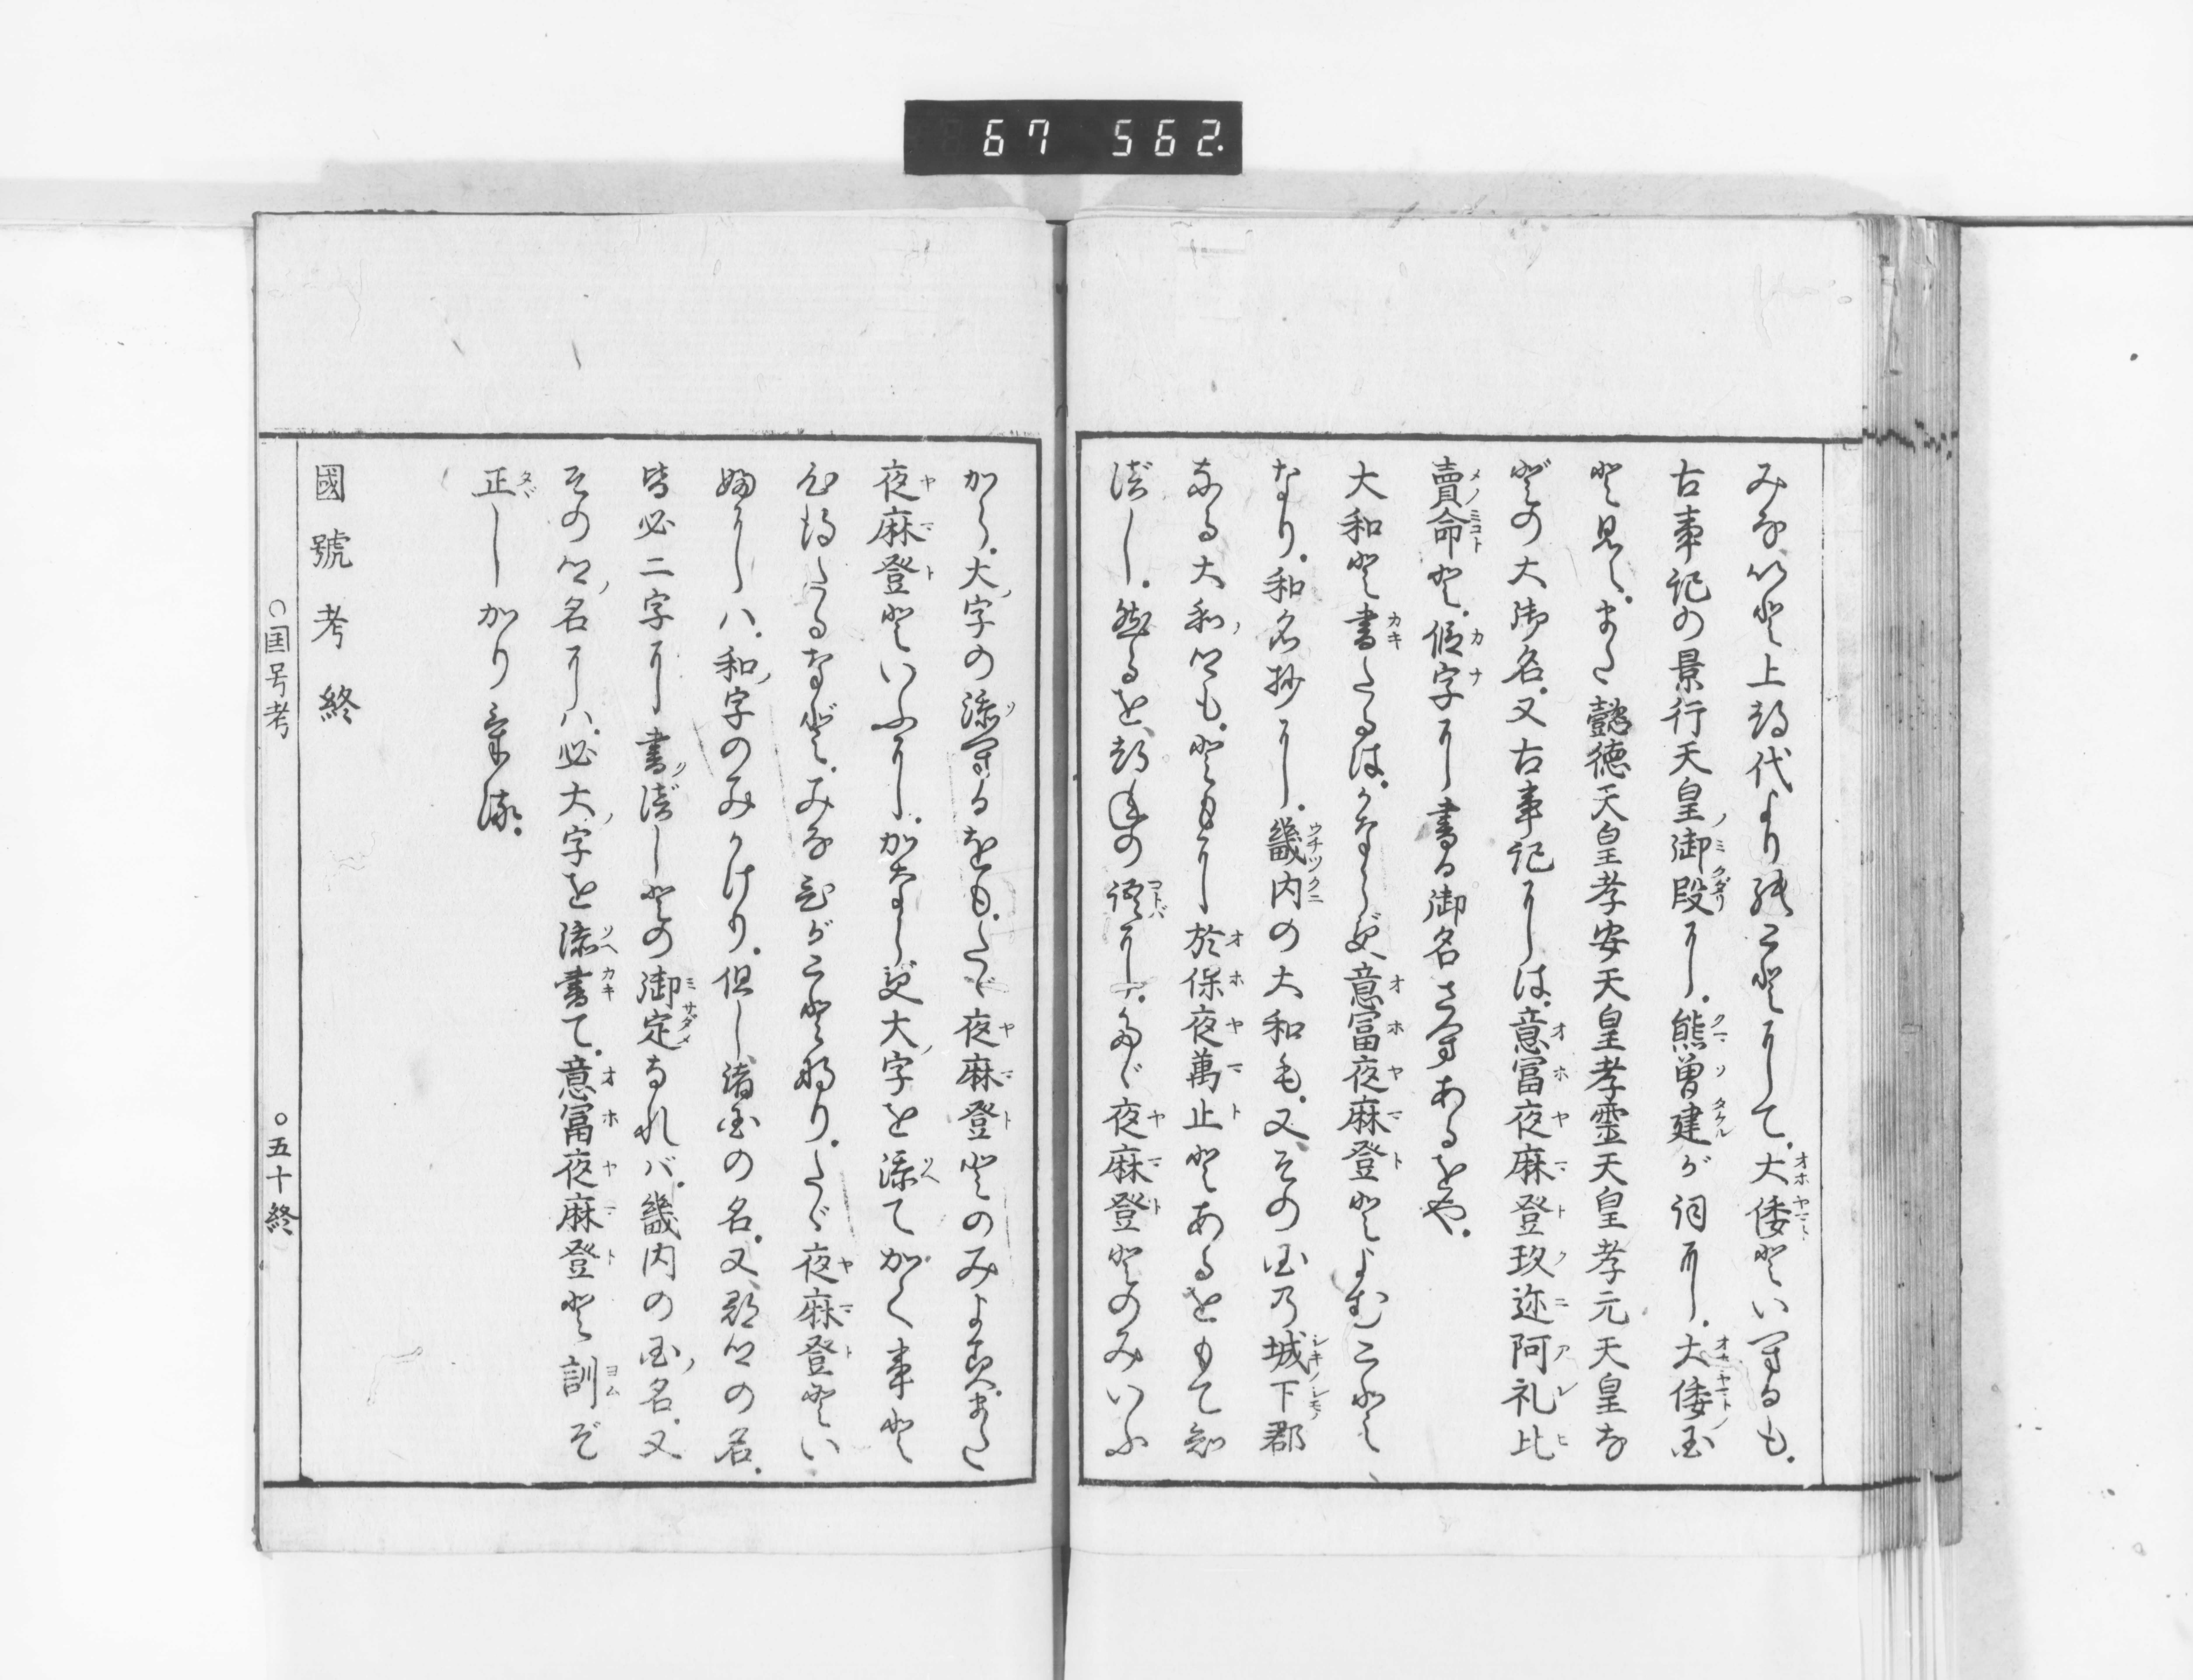 67 562.
みな、いと上つ代より然ことにして。大倭といへるも。
古事記の景行天皇ノ御段に。熊曽建が詞に。大倭国
と見え。また懿徳天皇孝安天皇孝霊天皇孝元天皇な
どの大御名。又古事記には。意富夜麻登玖迩阿礼比
賣命と。仮字に書る御名さへあるをや。
大和と書たるは。かならず意富夜麻登とよむこと
なり。和名抄に。畿内の大和も。又、その国乃城下郡
なる大和ノ郷も。ともに於保夜萬止とあるをもて知
べし。然るを、つねの語に。たゞ夜麻登とのみいふ
から。大ノ字の添へるをも。たゞ夜麻登とのみよみ。また
夜麻登といふに。かならず大ノ字を添てかく事と
心得たるなど。みなひがこと也。たゞ夜麻登とい
ふには。和ノ字のみかけり。但し諸国の名。又、郡郷の名。
皆必二字に書べしとの御定なれバ。畿内の国ノ名。又
その郷ノ名にハ。必大ノ字を添書て。意富夜麻登と訓ぞ
正しかりける。
國號考終
国号考
五十終